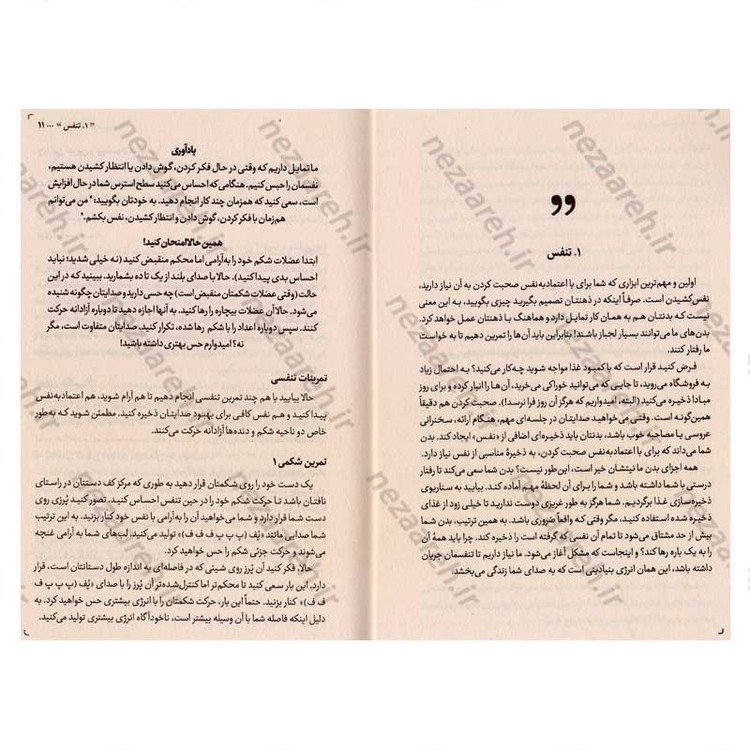 ۱. تنفس
اولین و مهم‌ترین ابزاری که شما برای با اعتمادبه‌نفس صحبت کردن به آن نیاز دارید،
نفس‌کشیدن است. صرفاً اینکه در ذهنتان تصمیم بگیرید چیزی بگویید، به این معنی
نیست که بدنتان هم به همان کار تمایل دارد و هماهنگ با ذهنتان عمل خواهد کرد.
بدن‌های ما می‌توانند بسیار لجباز باشند! بنابراین باید آن‌ها را تمرین دهیم تا به خواست
ما رفتار کنند.
فرض کنید قرار است که با کمبود غذا مواجه شوید چه‌کار می‌کنید؟ به احتمال زیاد
به فروشگاه می‌روید، تا جایی که می‌توانید خوراکی می‌خرید، آن‌ها را انبار کرده و برای روز
مبادا ذخیره می‌کنید (البته، امیدواریم که هرگز آن روز فرا نرسد!). صحبت کردن هم دقیقاً
همین‌گونه است. وقتی می‌خواهید صدایتان در جلسه‌ای مهم، هنگام ارائه، سخنرانی
عروسی یا مصاحبه خوب باشد، بدنتان باید ذخیره‌ای اضافی از «نفس» ایجاد کند. بدن
شما می‌داند که برای با اعتمادبه‌نفس صحبت کردن، به ذخیرهٔ مناسبی از نفس نیاز دارد.
همه اجزای بدن ما نیتشان خیر است، این‌طور نیست؟ بدن شما سعی می‌کند تا رفتار
درستی با شما داشته باشد و شما را برای آن لحظهٔ مهم آماده کند. بیایید به سناریوی
ذخیره‌سازی غذا برگردیم. شما هرگز به طور غریزی دوست ندارید تا خیلی زود از غذای
ذخیره شده استفاده کنید، مگر وقتی که واقعاً ضروری باشد. به همین ترتیب، بدن شما
بیش از حد مشتاق می‌شود تا تمام آن نفسی که گرفته است را ذخیره کند. چرا که باید آن
را به یک باره رها کند؟ و اینجاست که مشکل آغاز می‌شود. ما نیاز داریم تا تنفسمان جریان
داشته باشد، این همان انرژی بنیادینی است که به صدای شما زندگی می‌بخشد.
” ۱. تنفس “ ... ۱۱
یادآوری
ما تمایل داریم که وقتی در حال فکر کردن، گوش دادن یا انتظار کشیدن هستیم،
نفسمان را حبس کنیم. هنگامی که احساس می‌کنید سطح استرس شما در حال افزایش
است، سعی کنید که همزمان چند کار انجام دهید. به خودتان بگویید: "من می‌توانم
هم‌زمان با فکر کردن، گوش دادن و انتظار کشیدن، نفس بکشم."
همین حالا امتحان کنید!
ابتدا عضلات شکم خود را به‌آرامی اما محکم منقبض کنید (نه خیلی شدید؛ نباید
احساس بدی پیدا کنید). حالا با صدای بلند از یک تا ده بشمارید. ببینید که در این
حالت (وقتی عضلات شکمتان منقبض است) چه حسی دارید و صدایتان چگونه شنیده
می‌شود. حالا آن عضلات بیچاره را رها کنید. به آنها اجازه دهید تا دوباره آزادانه حرکت
کنند. سپس دوباره اعداد را با شکم رها شده، تکرار کنید. صدایتان متفاوت است، مگر
نه؟ امیدوارم حس بهتری داشته باشید!
تمرینات تنفسی
حالا بیایید با هم چند تمرین تنفسی انجام دهیم تا هم آرام شوید، هم اعتمادبه‌نفس
پیدا کنید و هم نفس کافی برای بهبود صدایتان ذخیره کنید. مطمئن شوید که به‌طور
خاص دو ناحیه شکم و دنده‌ها آزادانه حرکت می‌کنند.
تمرین شکمی ۱
یک دست خود را روی شکمتان قرار دهید به طوری که مرکز کف دستتان در راستای
نافتان باشد تا حرکت شکم خود را در حین تنفس احساس کنید. تصور کنید پُرزی روی
دست شما قرار دارد و شما می‌خواهید آن را به‌آرامی با نفس خود کنار بزنید. به این ترتیب
شما صدایی مانند «پُف (پ پ پ ف ف ف)» تولید می‌کنید، لب‌های شما به آرامی غنچه
می‌شوند و حرکت جزئی شکم را حس خواهید کرد.
حالا، فکر کنید آن پُرز روی شیئی که در فاصله‌ای به اندازه طول دستانتان است، قرار
دارد. این بار سعی کنید تا محکم‌تر اما کنترل‌شده‌تر آن پُرز را با صدای «پُف (پ پ پ ف
ف ف)» کنار بزنید. حتماً این بار، حرکت شکمتان را با انرژی بیشتری حس خواهید کرد. به
دلیل اینکه فاصله شما با آن وسیله بیشتر است، ناخودآگاه انرژی بیشتری تولید می‌کنید.
nezaareh.ir